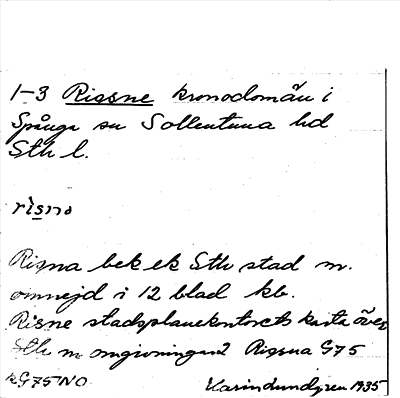 1-3 Rissne kronodomän i
Spånga sn Sollentuna hd
Sth l.
risno
Risna bek ek Sth stad m.
omnejd i 12 blad kb.
Risne stadsplanekontorets karta över
Sth m omgivningar? Rissna G75
kG75NO Karin Lundgren 1935